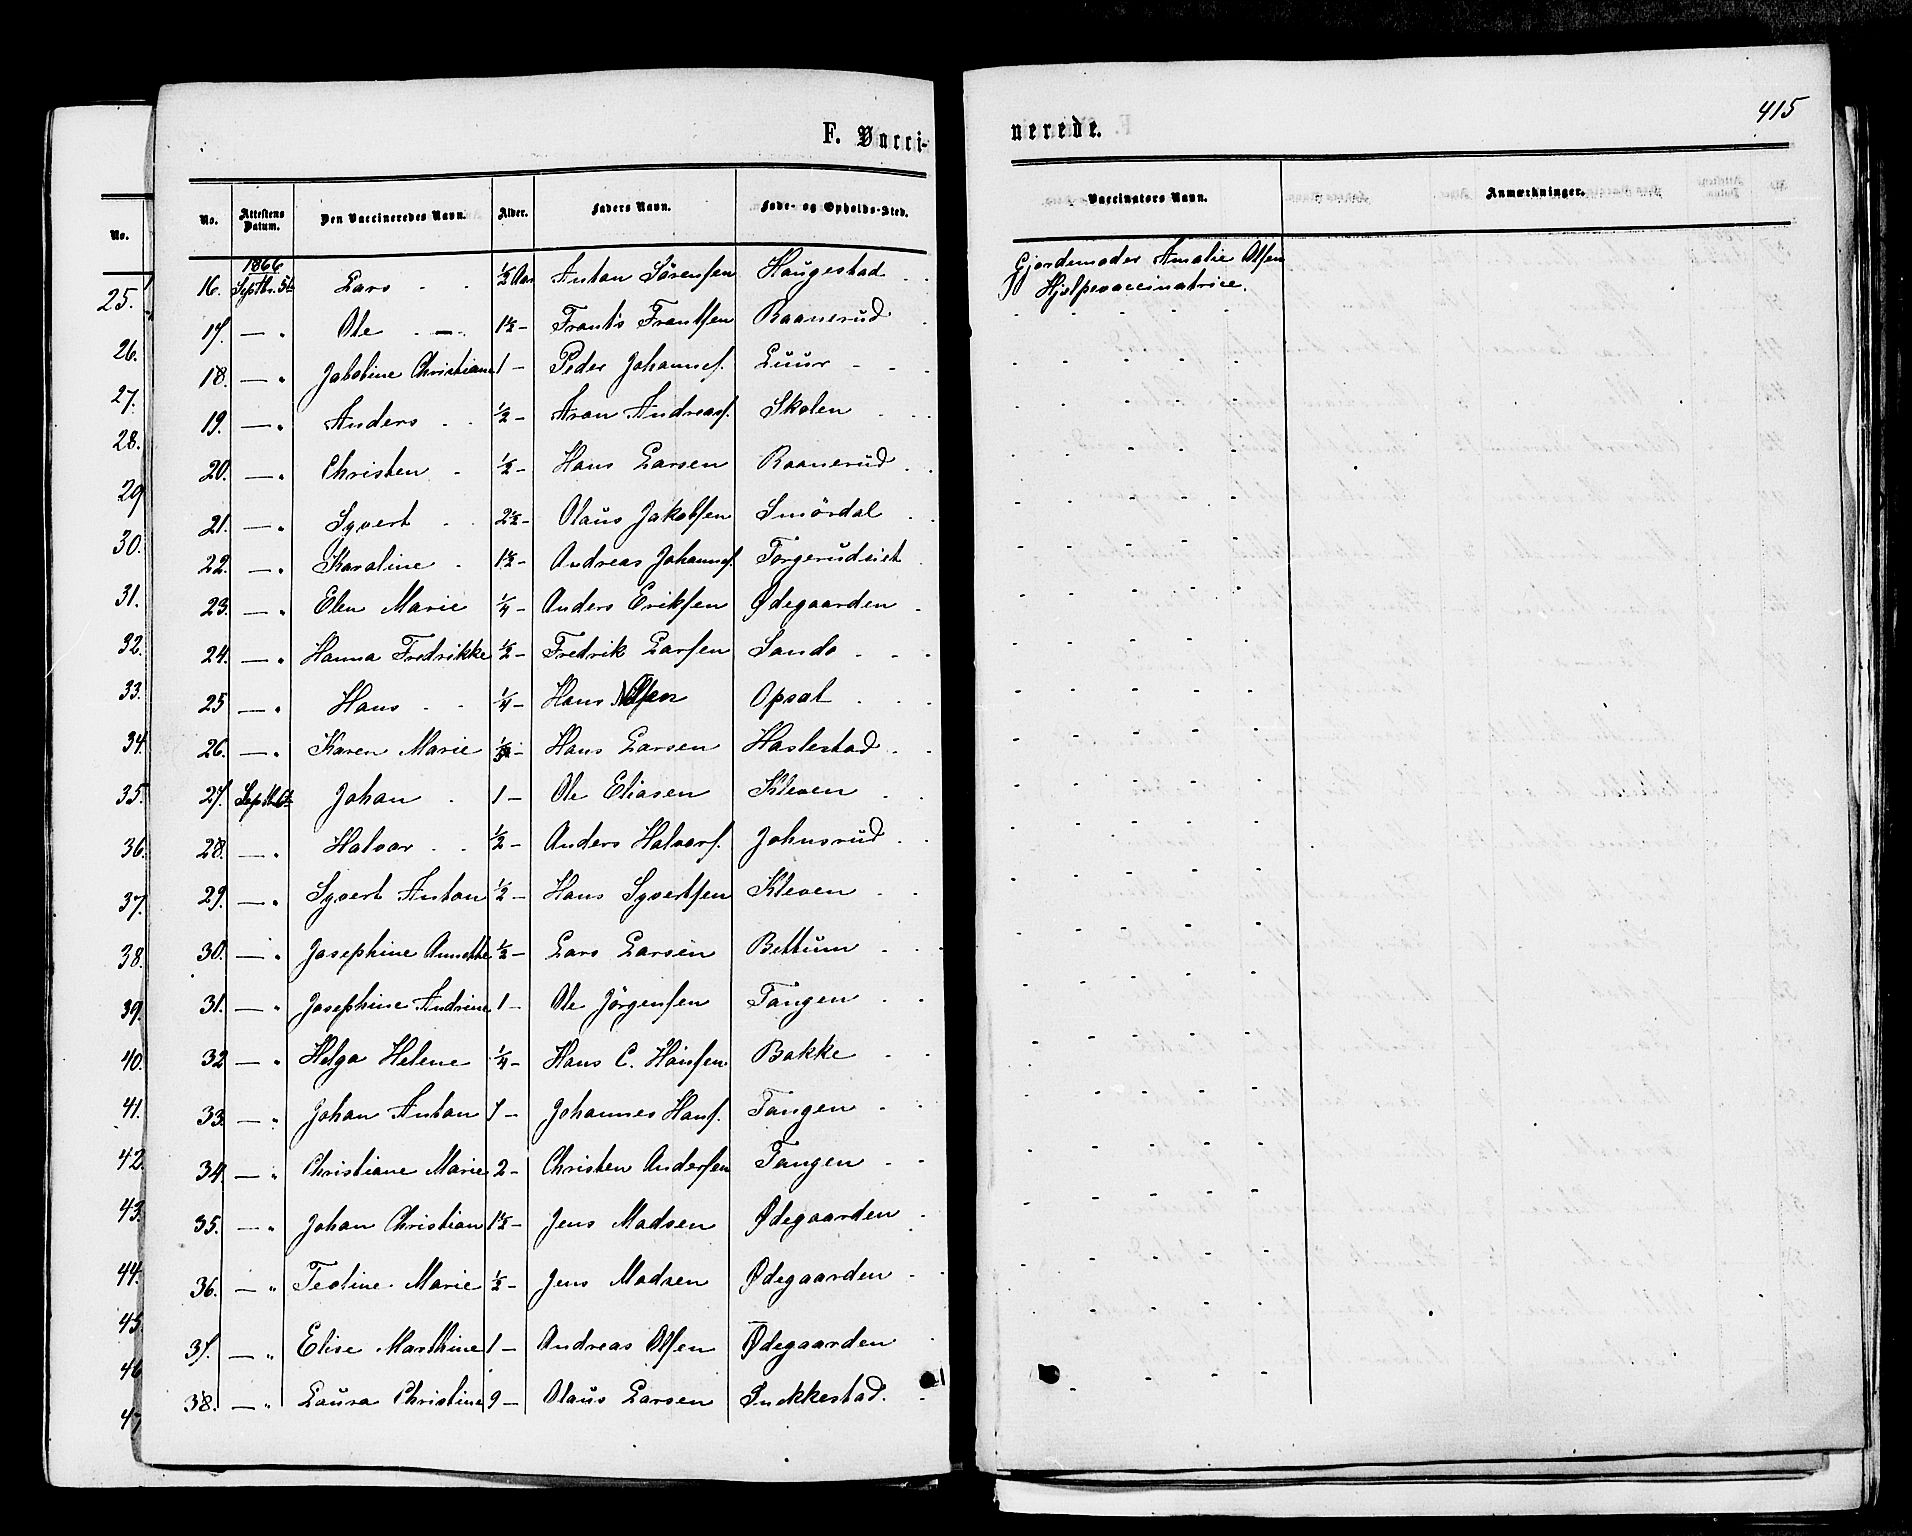 415
F. Vacci-nerede.
No. Attestens Datum. Den Vaccineredes Navn. Alder. Faders Navn. Føde- og Opholds-Sted. Vaccinators Navn. Anmærkninger.
1866
16. Septbr. 5te Lars ½ Aar Anton Sörensen Haugestad Gjordemoder Amalie Olsen
Hjelpevaccinatrice.
17. — " Ole 1½ — Frants Frantsen Raanerud
18. — " Jakobine Christiane 1 — Peder Johannes. Luur
19. — " Anders ½ — Aron Andreas. Skolen
20. — " Christen ½ — Hans Larsen Raanerud
21. — " Syvert 2½ — Olaus Jakobsen Smördal
22. — " Karoline 1½ — Andreas Johannes. Torgerudeiet
23. — " Elen Marie ¼ — Anders Eriksen Ødegaarden
24. — " Hanna Fredrikke ½ — Fredrik Larsen Sando
25 — " Hans ¼ — Hans Olsen Opsal
26. — " Karen Marie — Hans Larsen Haslestad
27. Septbr. 6te Johan 1 — Ole Eliasen Kleven
28. — " Halvor ½ — Anders Halvors. Johnsrud
29. — " Syvert Anton ½ — Hans Syvertsen Kleven
30. — " Josephine Annette ½ — Lars Larsen Bettum
31. — " Josephine Andrine 1 — Ole Jörgensen Tangen
32 — " Helga Helene ¼ — Hans C. Hansen Bakke
33. — " Johan Anton 1 — Johannes Hans. Tangen
34. — " Christiane Marie 2 — Christen Andersen Tangen
35. — " Johan Christian 1½ — Jens Madsen Ødegaarden
36. — " Teoline Marie ½ — Jens Madsen Ødegaarden
37. — " Elise Marthine 1 — Andreas Olsen Ødegaarden
38. — " Laura Christine 9 — Olaus Larsen Snekkestad.
No.
25.
26.
27.
28.
29
30.
31.
32.
33.
34.
35.
36.
37.
38.
39.
40.
41.
42.
43.
44.
45.
46
47